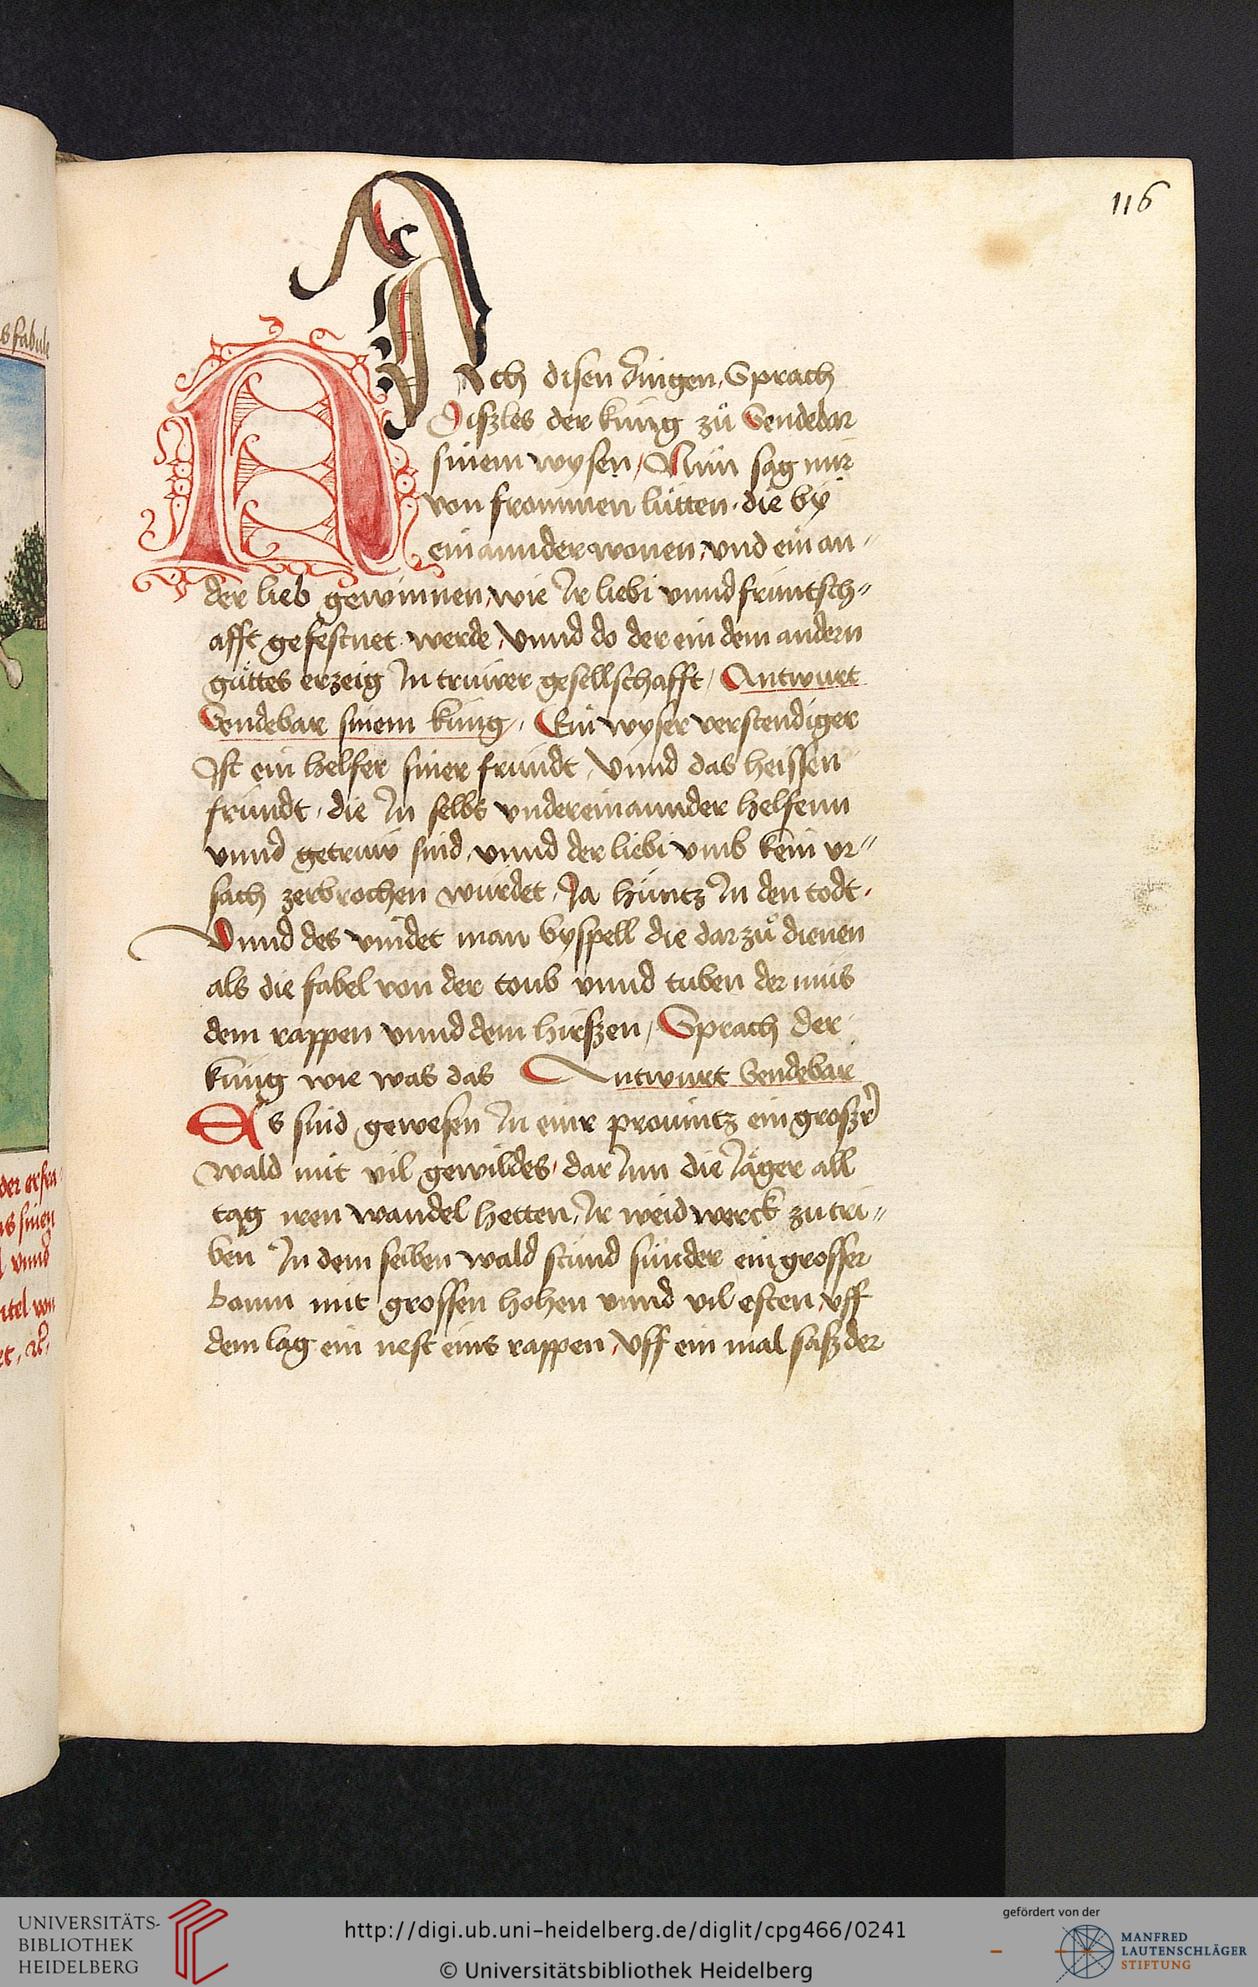 116
NAch disen dingen Sprach
Diszles der kúng zů Sendebar
sinem wysen / Nun sag mir
von frommen lútten · die by
ein annder wonen / vnd ein an〃
der lieb gewinnen / wie Ir liebi vnnd frúntsch〃
afft gefestnet werde / Vnnd do der ein dem andern
gúttes erzeig In trúwer gesellschafft / Antwurt
Sendebar sinem kúng / Ein wyser verstendiger
Ist ein helfer siner frúndt / Vnnd das heissen
frúndt · die In selbs vndereinannder helfenn
vnnd getrúw sind / vnnd der liebi vmb kein vr〃
sach zerbrochen wúrdet / Ja húntz In den todt ·
Vnnd des vindet man byspell die dar zů dienen
als die fabel von der toub vnnd tuben der mús
dem rappen vnnd dem hirszen / Sprach der
kúng wie was das Antwurt Sendebar
Es sind gewesen In einr prouintz ein groszr
wald mit vil gewildes · dar Inn die Jäger all
tag iren wandel hetten / Ir weidwerck zu tri〃
ben In dem selben wald stúnd sunder ein grosser
Boum mit grossen hohen vnnd vil esten / vff
dem lag ein nest eins rappen / Vff ein mal sasz der
s fabule
der
vnnd
UNIVERSITÄTS-
BIBLIOTHEK
HEIDELBERG
http://digi.ub.uni-heidelberg.de/diglit/cpg466/0241
© Universitätsbibliothek Heidelberg
gefördert von der
MANFRED
LAUTENSCHLÄGER
STIFTUNG